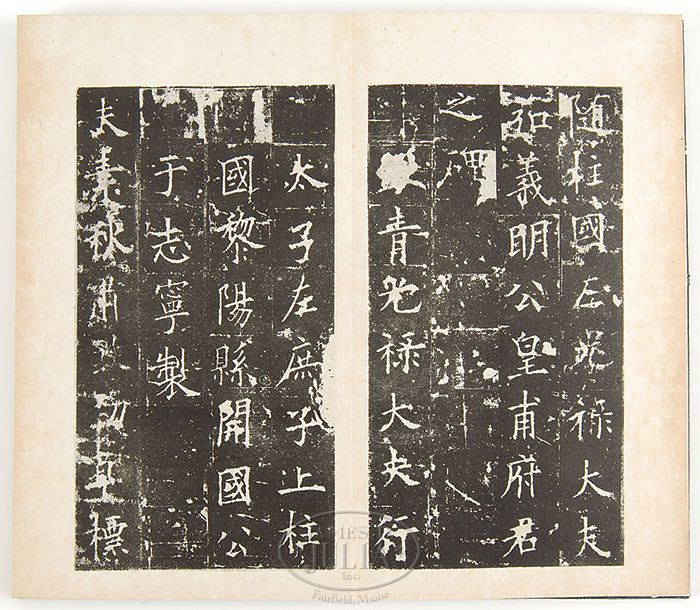 隨柱國左光祿大夫
弘義明公皇甫府君
之碑
銀青光祿大夫行
太子左庶子上柱
國黎陽縣開國公
于志寧製
夫素秋肅煞勁草標
JAMES D.
JULIA
Inc.
Fairfield, Maine